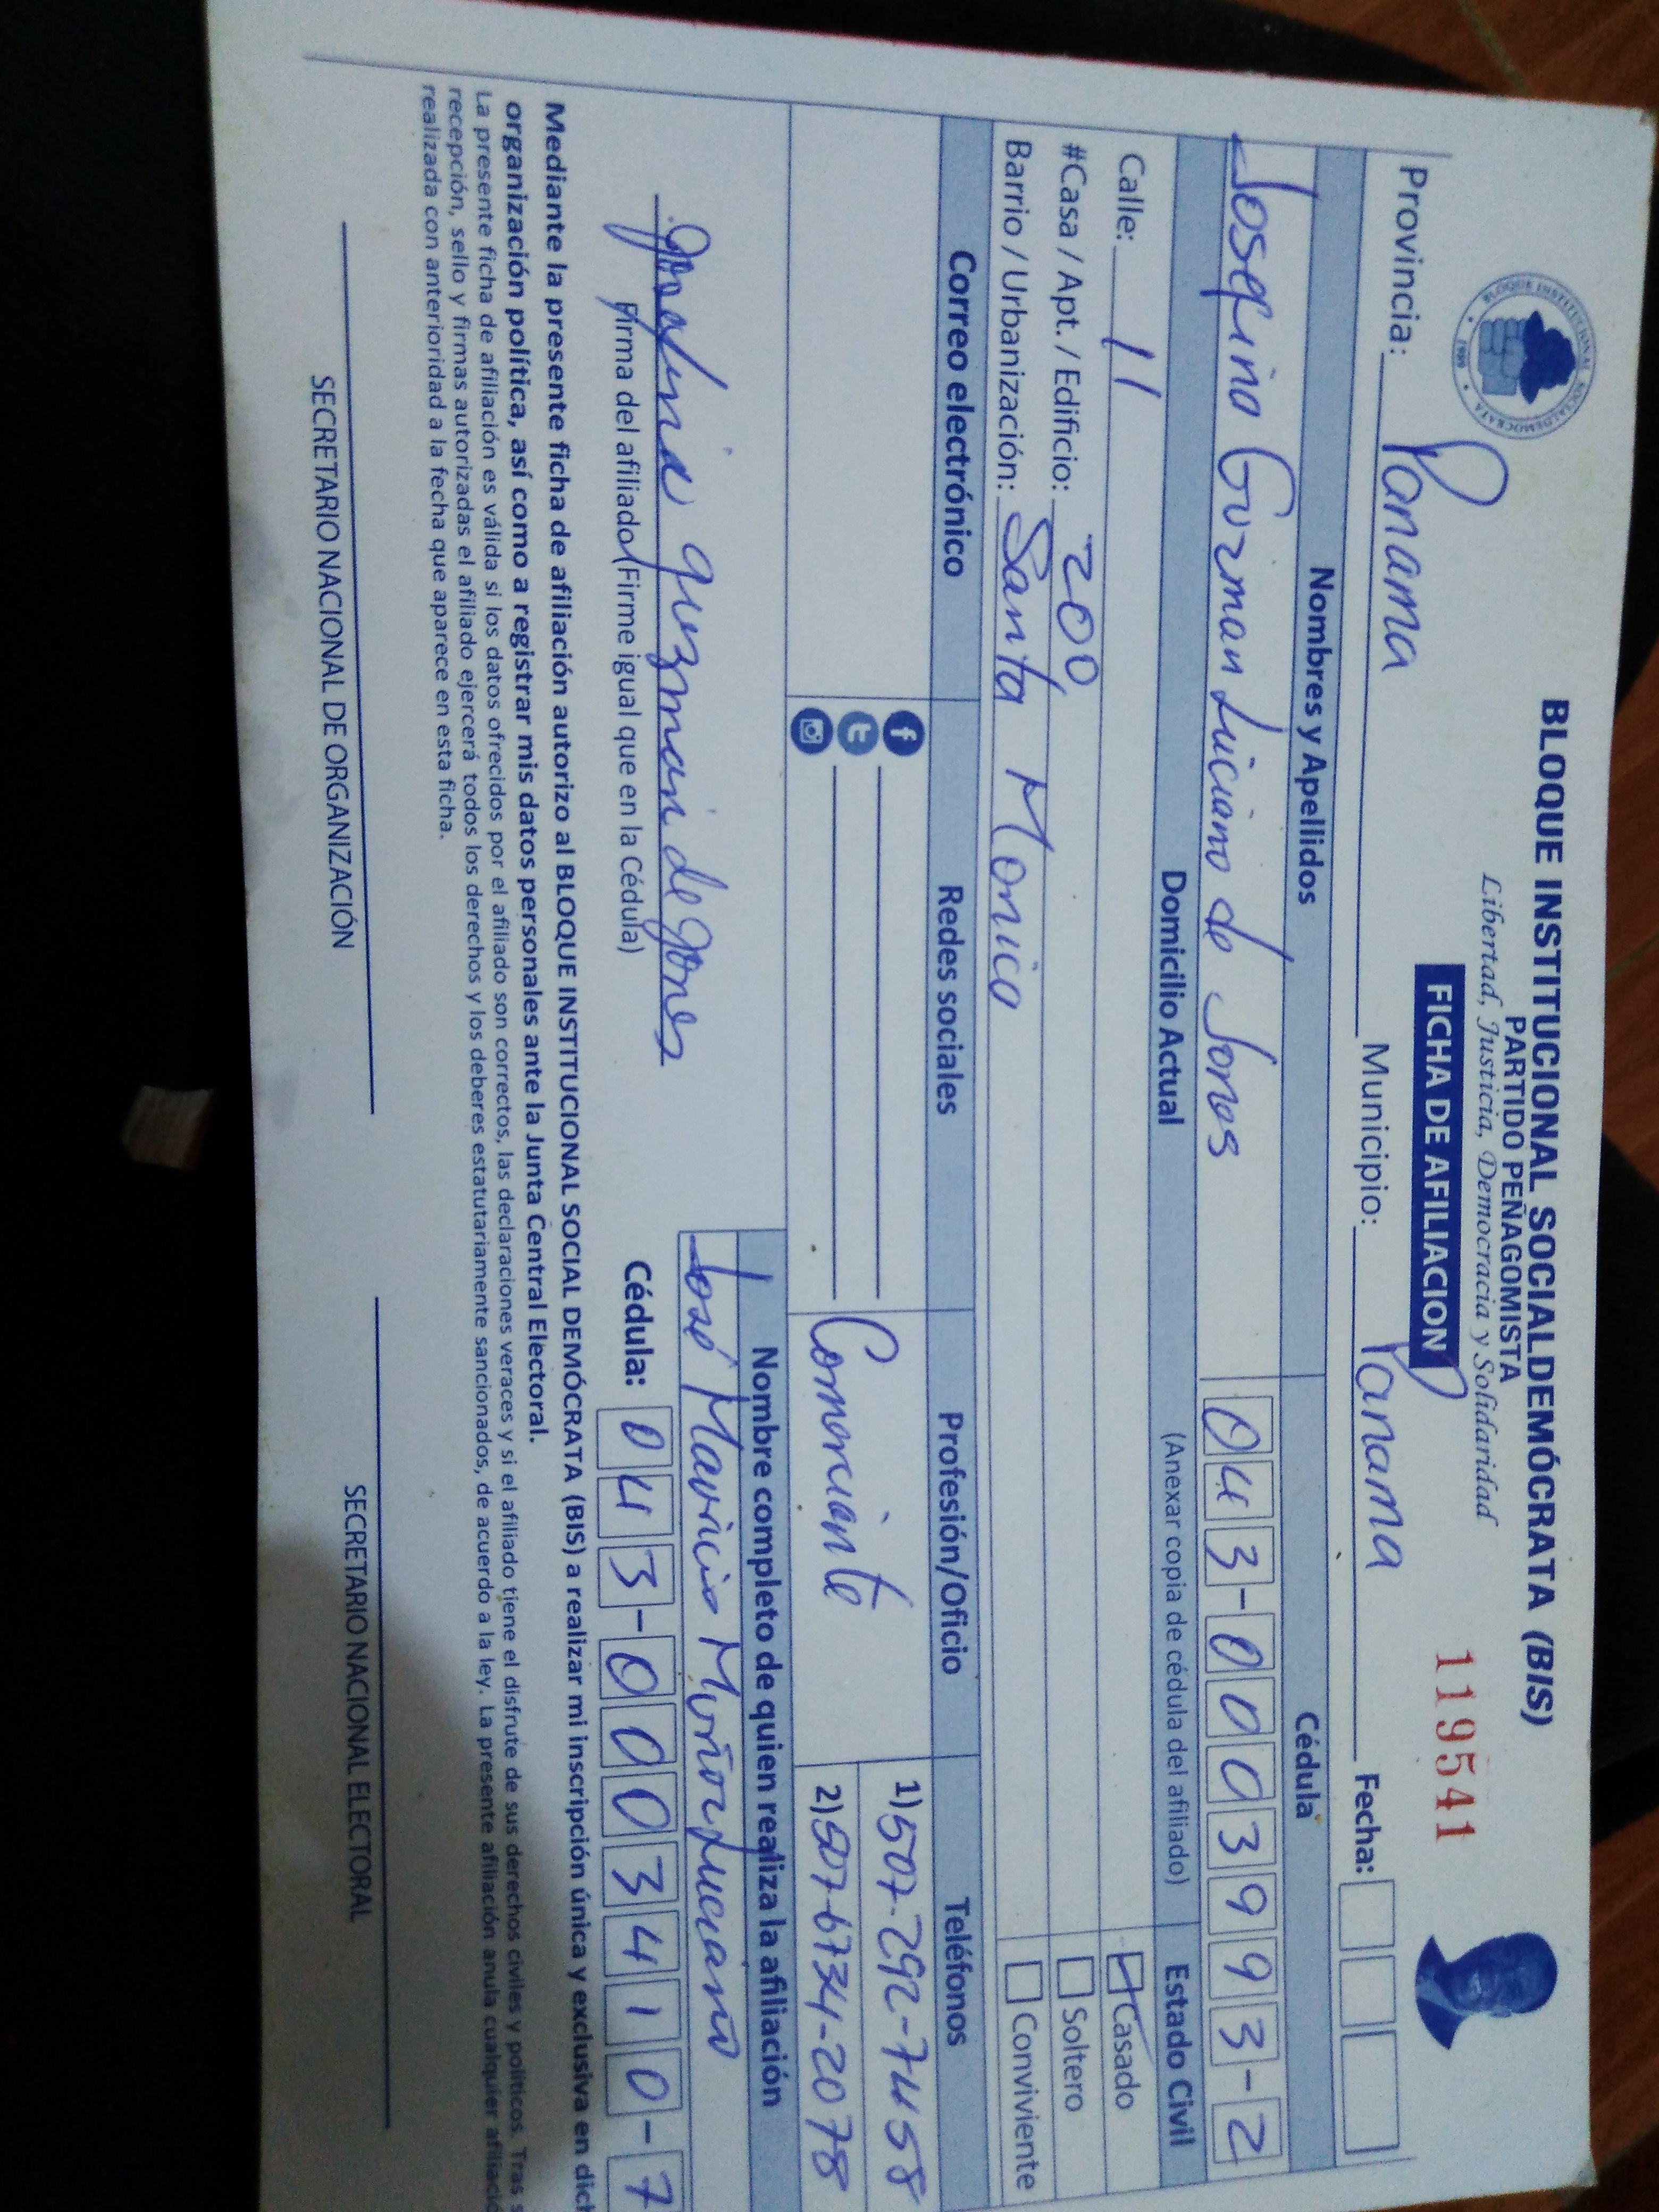 BLOQUE INSTITUCIONAL SOCIALDEMÓCRATA (BIS)
PARTIDO PEÑAGOMISTA
Libertad, Justicia, Democracia y Solidaridad
FICHA DE AFILIACION
119541
BLOQUE INSTITUCIONAL SOCIALDEMOCRATA
1989
Provincia: Panama Municipio: Panama Fecha:
Nombres y Apellidos Cédula
Josefina Guzman Luciano de Jones 043-0003993-2
Domicilio Actual (Anexar copia de cédula del afiliado) Estado Civil
Calle: 11 Casado
#Casa / Apt. / Edificio: 200 Soltero
Barrio / Urbanización: Santa Monica Conviviente
Correo electrónico Redes sociales Profesión/Oficio Teléfonos
Comerciante 1) 507-292-7458
2) 507-6734-2078
Nombre completo de quien realiza la afiliación
josefina guzman de jones José Mauricio Muñoz Luciano
Firma del afiliado (Firme igual que en la Cédula) Cédula: 043-0003410-7
Mediante la presente ficha de afiliación autorizo al BLOQUE INSTITUCIONAL SOCIAL DEMÓCRATA (BIS) a realizar mi inscripción única y exclusiva en dich
organización política, así como a registrar mis datos personales ante la Junta Central Electoral.
La presente ficha de afiliación es válida si los datos ofrecidos por el afiliado son correctos, las declaraciones veraces y si el afiliado tiene el disfrute de sus derechos civiles y políticos. Tras s
recepción, sello y firmas autorizadas el afiliado ejercerá todos los derechos y los deberes estatutariamente sancionados, de acuerdo a la ley. La presente afiliación anula cualquier afiliació
realizada con anterioridad a la fecha que aparece en esta ficha.
SECRETARIO NACIONAL DE ORGANIZACIÓN SECRETARIO NACIONAL ELECTORAL